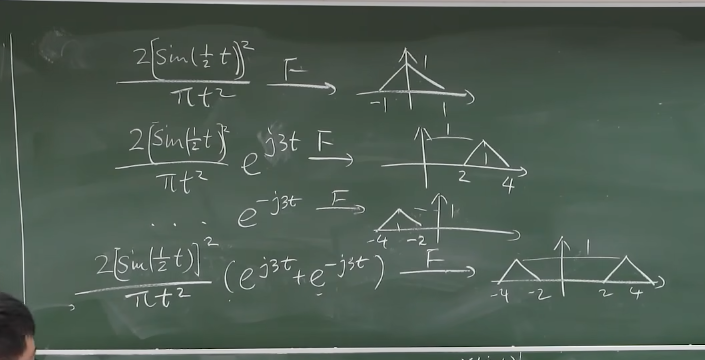 2[sin(½t)]² / πt² F→ 1 -1 1
2[sin(½t)]² / πt² e^{j3t} F→ 1 2 4
. . . e^{-j3t} F→ 1 -4 -2
2[sin(½t)]² / πt² (e^{j3t}+e^{-j3t}) F→ 1 -4 -2 2 4